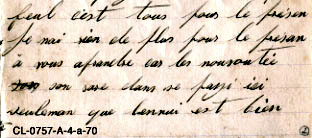 feul c'est tous pour le présen
je nai rien de plus pour le presan
a vous aprandre car les nouvoutie
son rare dans se pazzi ici
seuleman que lennui est bien
CL-0757-A-4-a-70